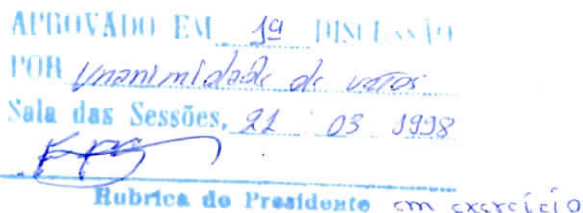 APROVADO EM 1ª DISCUSSÃO
POR Unanimidade de votos
Sala das Sessões, 21 03 1998
Rubrica do Presidente em exercício